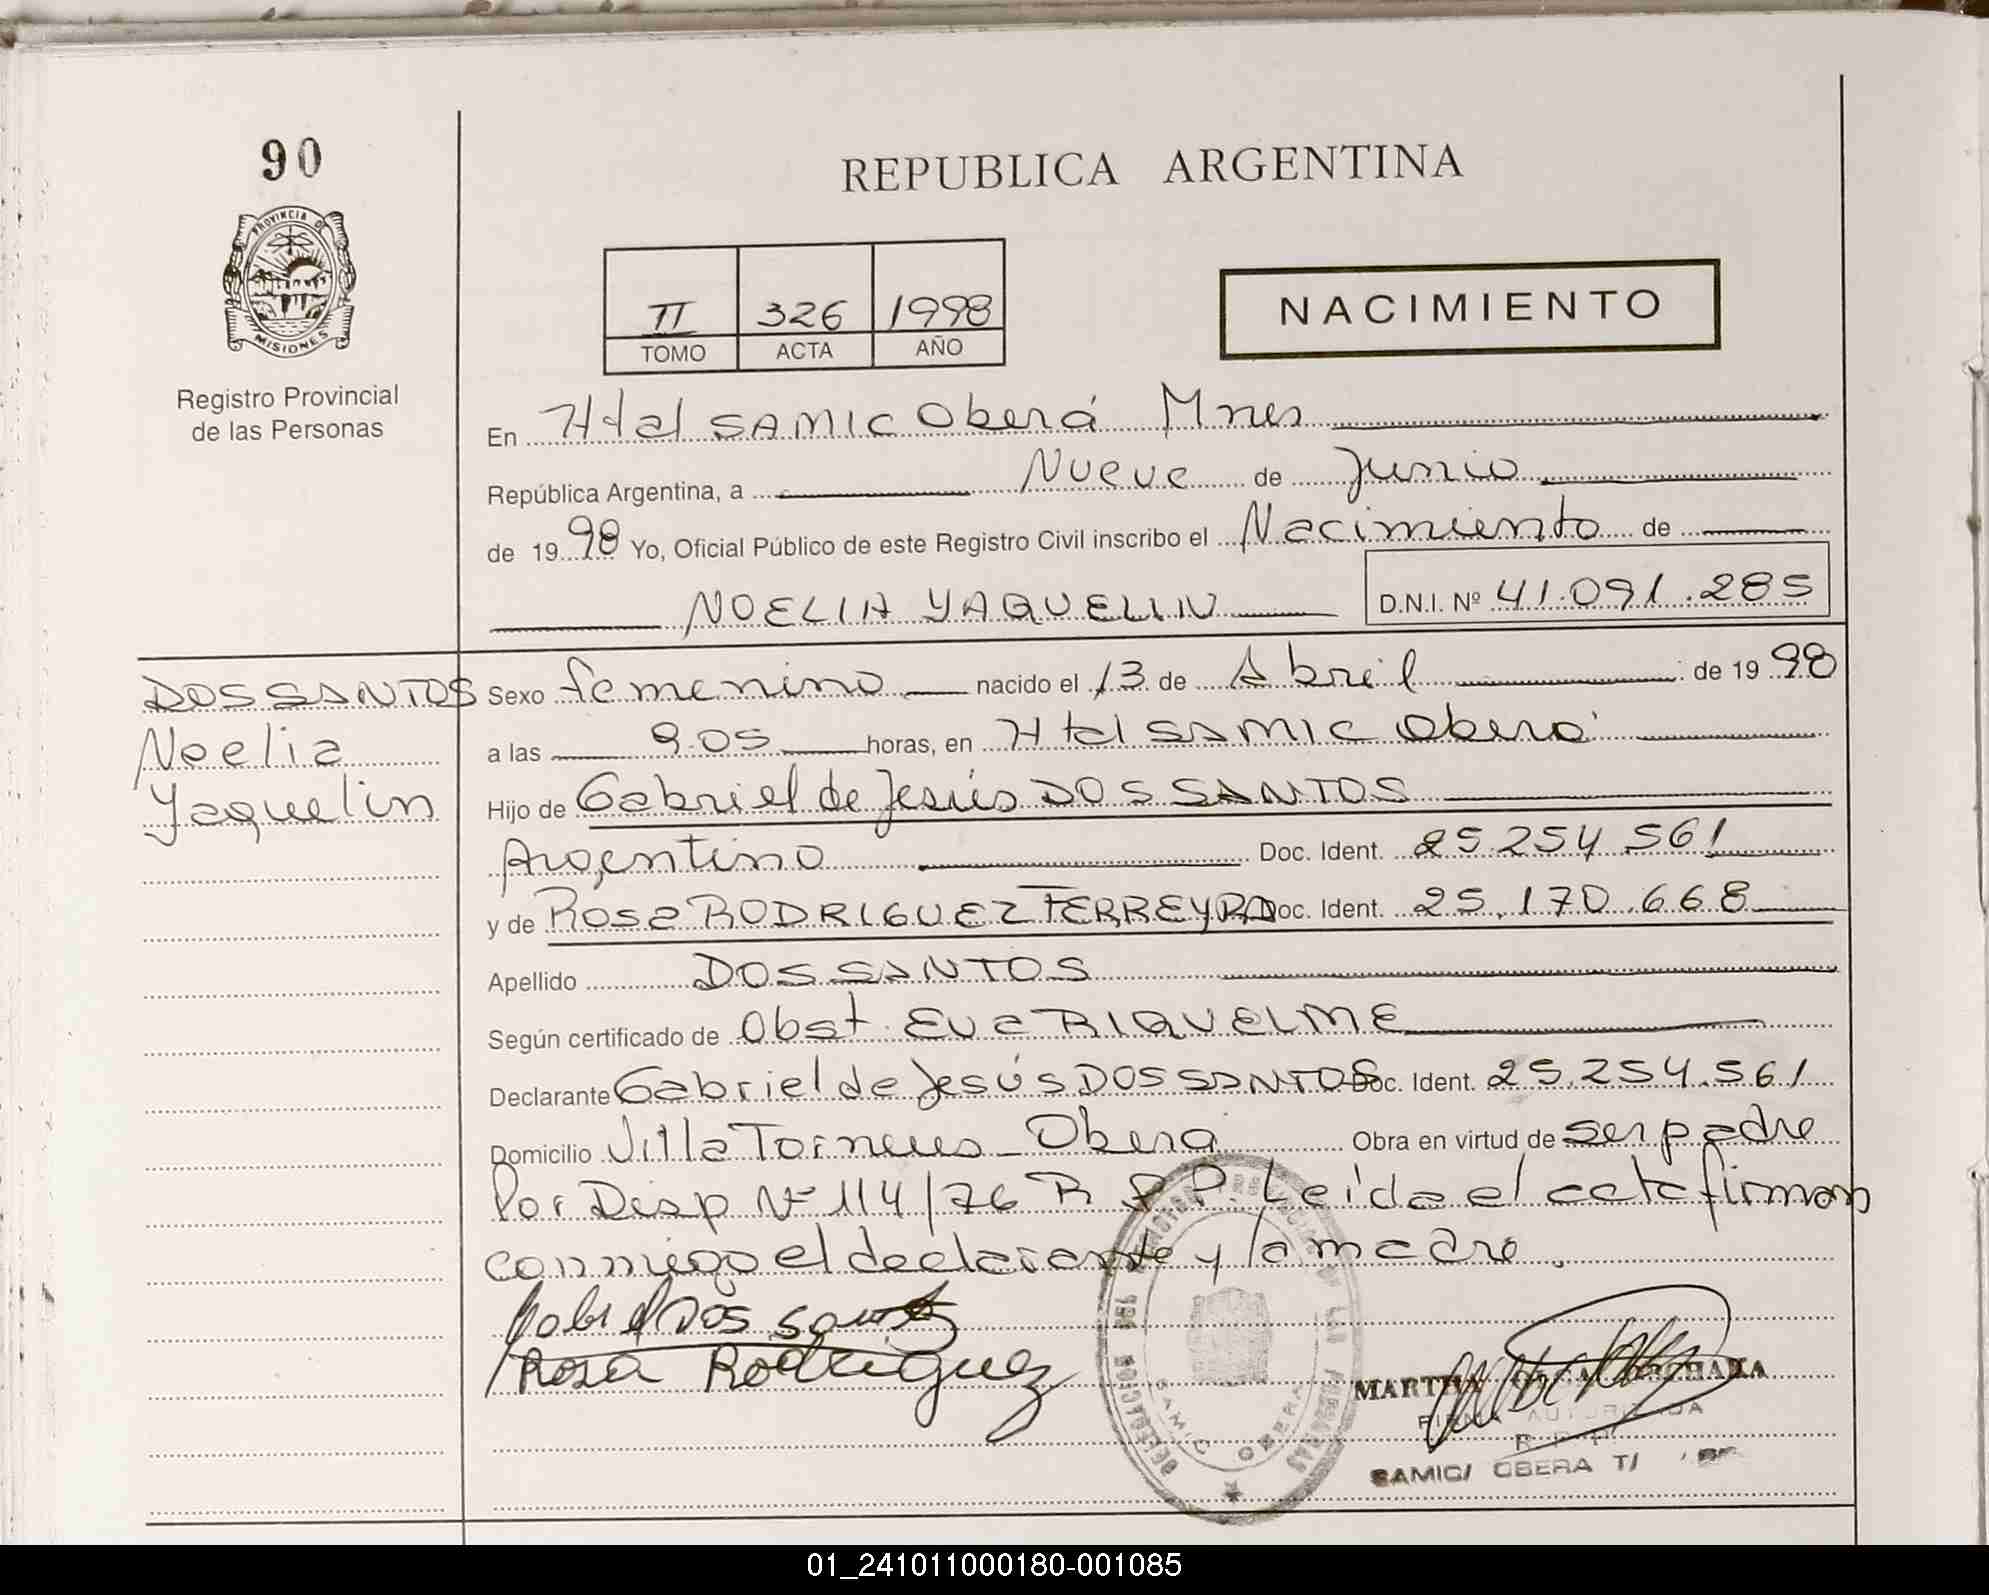 90
PROVINCIA DE
MISIONES
Registro Provincial
de las Personas
REPUBLICA ARGENTINA
II 326 1998
TOMO ACTA AÑO
NACIMIENTO
En Htal SAMIC Oberá Mnes
República Argentina, a Nueve de Junio
de 19 98 Yo, Oficial Público de este Registro Civil inscribo el Nacimiento de
NOELIA YAQUELIN D.N.I. Nº 41.091.285
DOS SANTOS
Noelia
Yaquelin
Sexo femenino nacido el 13 de Abril de 19 98
a las 9.05 horas, en Htal SAMIC Oberá
Hijo de Gabriel de Jesús DOS SANTOS
Argentino Doc. Ident. 25.254.561
y de Rosa RODRIGUEZ FERREYRA Doc. Ident. 25.170.668
Apellido DOS SANTOS
Según certificado de Obst. Eva RIQUELME
Declarante Gabriel de Jesús DOS SANTOS Doc. Ident. 25.254.561
Domicilio Villa Torneus - Oberá Obra en virtud de ser padre
Por Disp Nº 114/76 R.P.P. Leída el acta firman
conmigo el declarante y la madre.
Gabriel Dos Santos
Rosa Rodriguez
DE LAS PERSONAS
SAMIC OBERA
MARTHA
FIRMA AUTORIZADA
R.P.P.
SAMIC/ OBERA T/
01_241011000180-001085